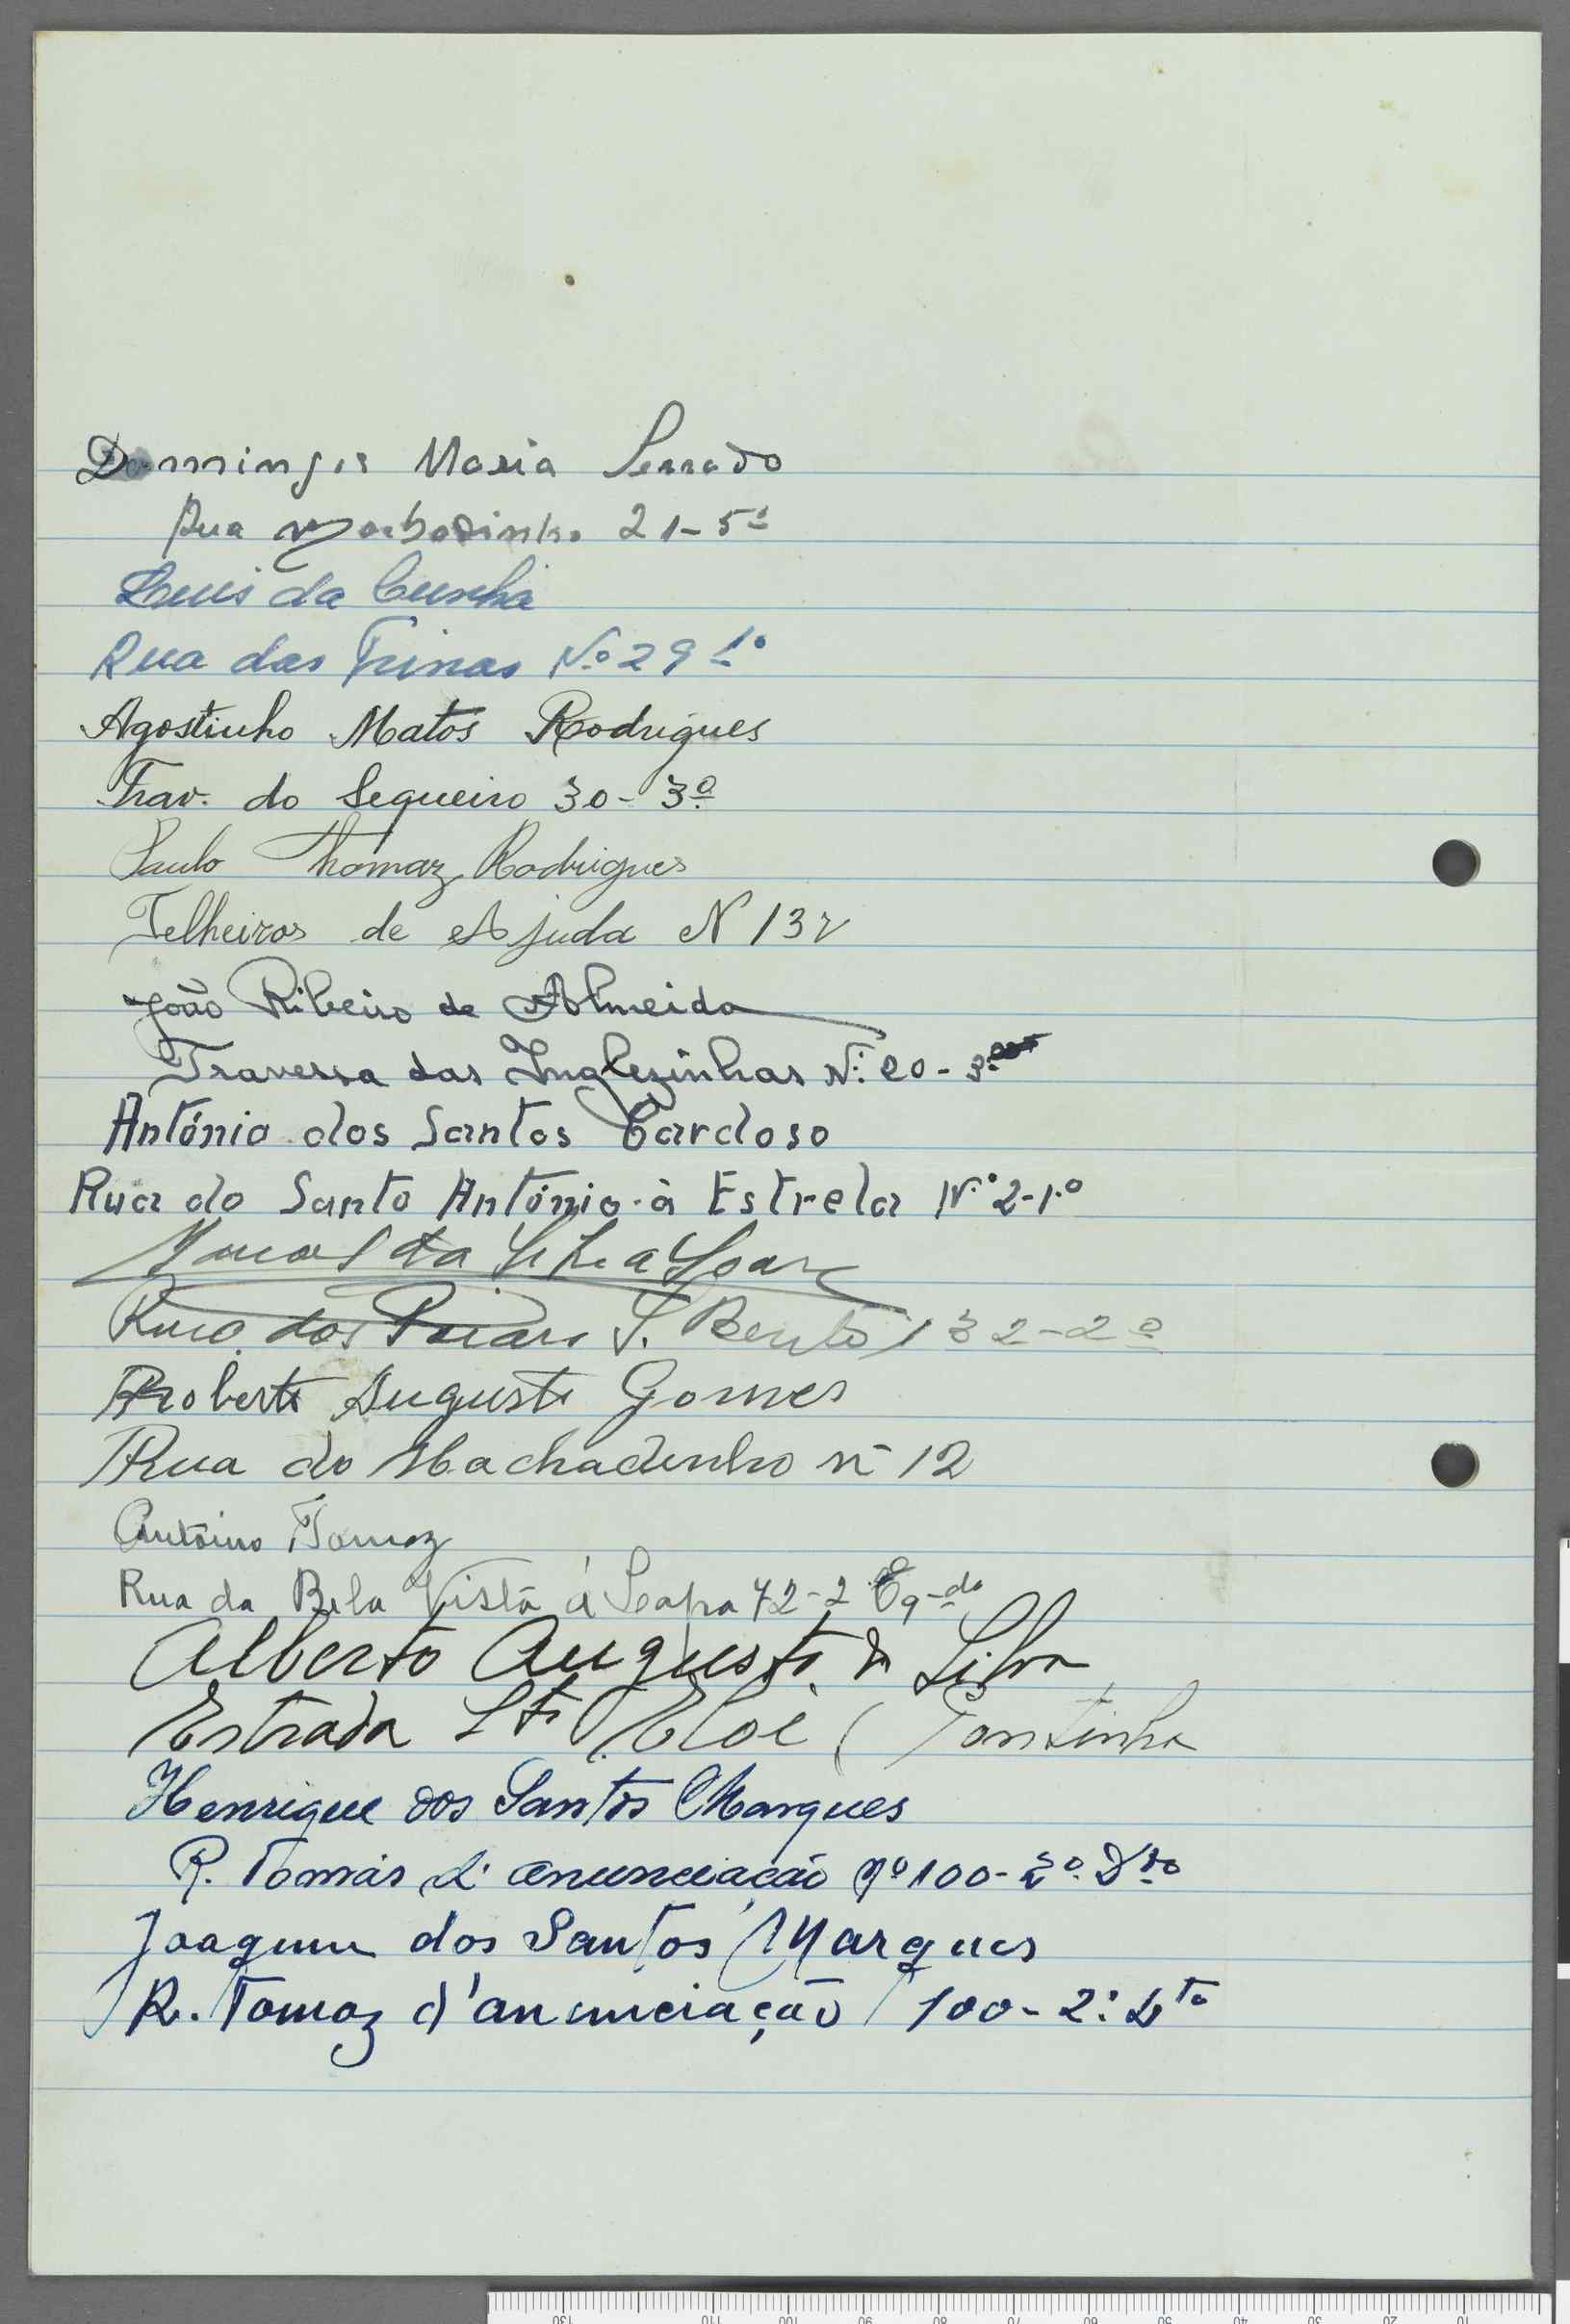 Domingos Maria Serrado
Rua Machadinho 21-5º
Luis da Cunha
Rua das Trinas Nº 29 1º
Agostinho Matos Rodrigues
Trav. do Sequeiro 30-3º
Paulo Thomaz Rodrigues
Telheiros de Ajuda N 13
João Ribeiro de Almeida
Travessa das Inglezinhas Nº 20-3º
António dos Santos Cardoso
Rua do Santo António à Estrela Nº 2-1º
Manoel da Silva Soares
Rua dos Poiais S. Bento 132-2º
Roberto Augusto Gomes
Rua do Machadinho nº 12
António Tomaz
Rua da Bela Vista á Lapa 72-2º Eq-do
Alberto Augusto da Silva
Estrada Sto Eloi (Pontinha
Henrique dos Santos Marques
R. Tomás d'anunciação nº 100-2º Dto
Joaquim dos Santos Marques
R. Tomaz d'anunciação 100-2º Dto